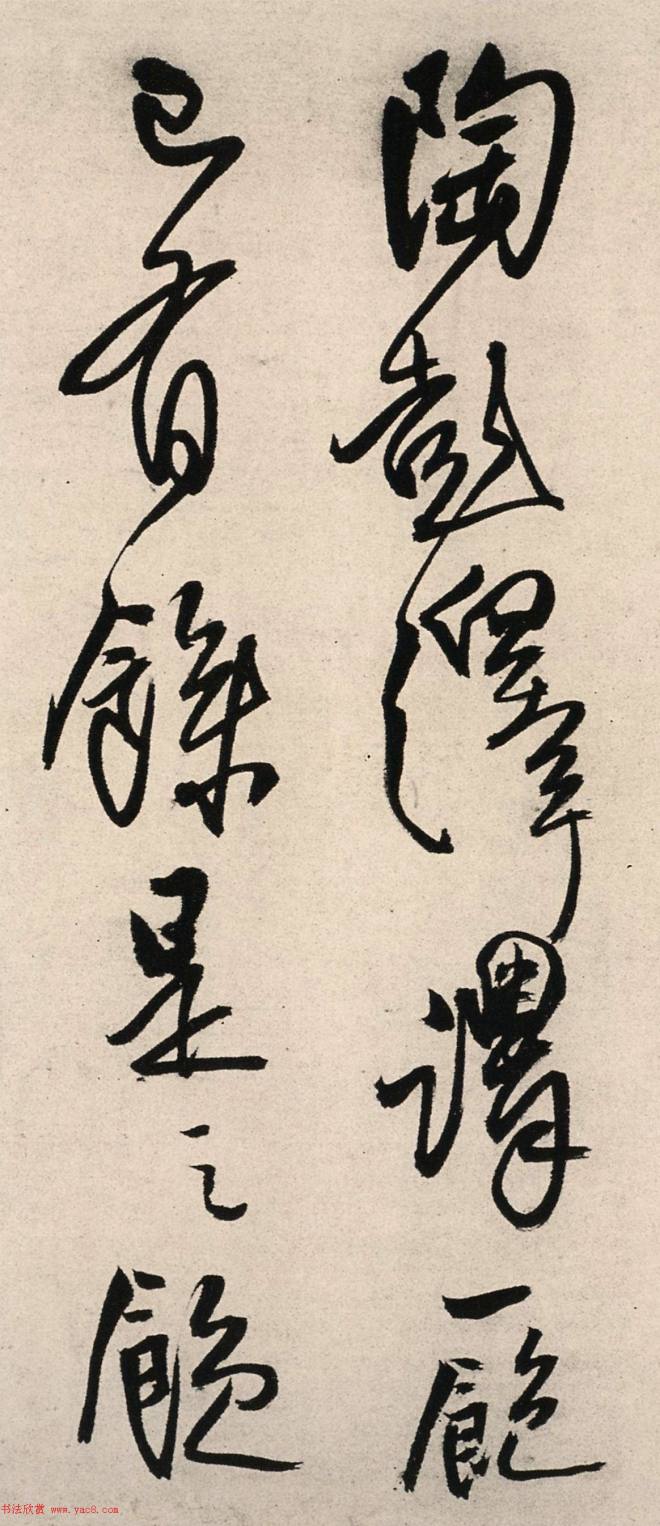 陶彭澤謂一飽
已有餘是之飽
书法欣赏 www.yac8.com